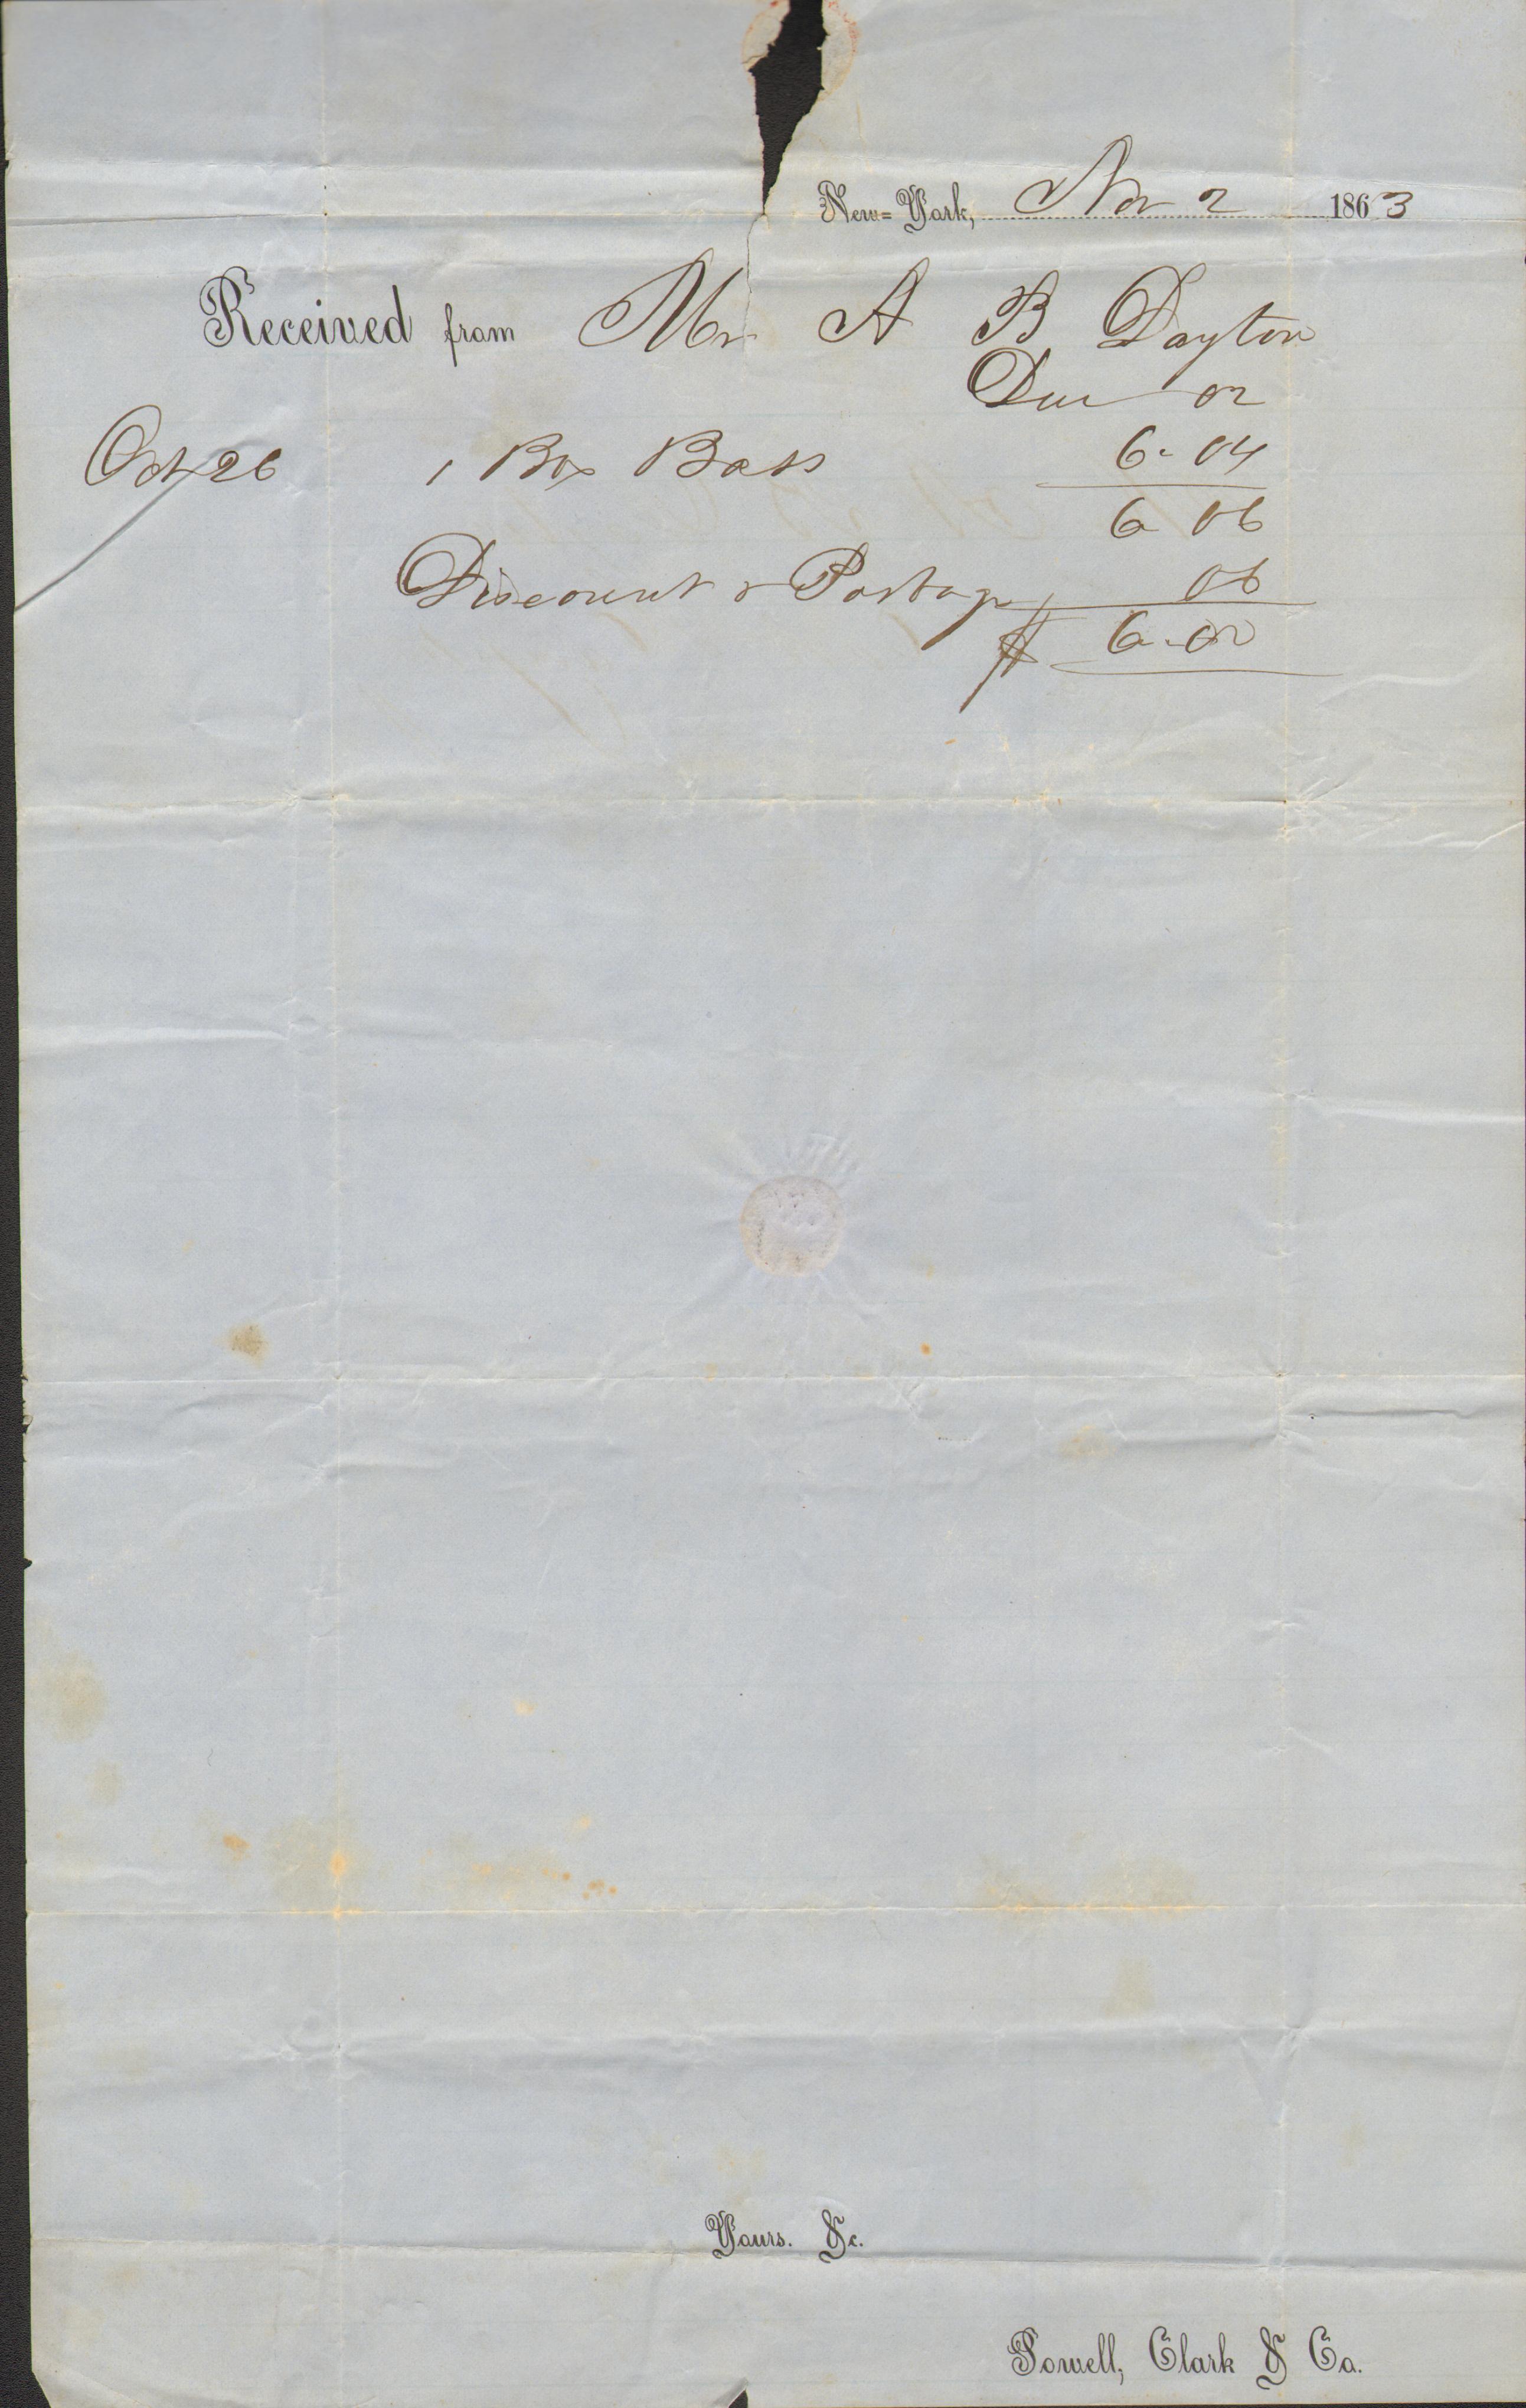 New=York, Nov 2 1863
Received from Mr A B Dayton
Due 02
Oct 26 1 Box Bass 6-04
6 06
Discount & Postage 06
$ 6-00
Yours. &c.
Powell, Clark & Co.